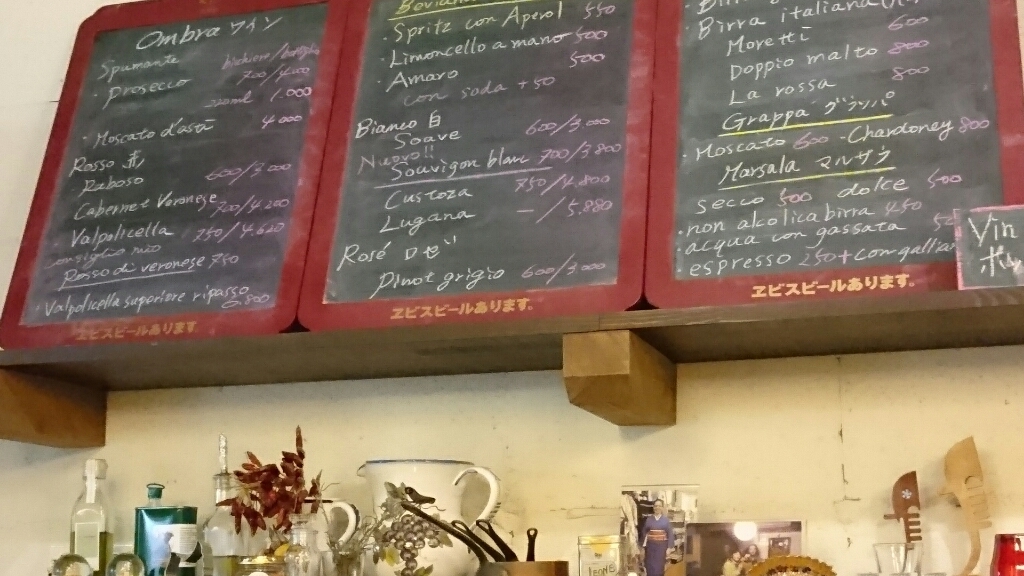 Ombra ワイン
Spumante bichiere/bottiglia
Prosecco 700/4.200
1.000
・Moscato d'asti 4.000
Rosso 赤
Raboso 600/3.000
Cabernet Veronese 700/4.200
・Valpolicella 750/4.620
Rosso di veronese 750
Valpolicella superiore ripasso
ヱビスビールあります。
・Spritz con Aperol 550
・Limoncello a mano 500
・Amaro 500
con soda +50
Bianco 白
Soave 600/3.000
Nuovo!!
Souvigon blanc 700/3.800
Custoza 750/4.800
Lugana —/5.880
Rosé ロゼ
Pinot grigio 600/3.000
ヱビスビールあります。
・Birra italiana
Moretti 600
Doppio malto 800
La rossa 800
Grappa グラッパ
・Moscato 600 ・Chardoney 800
Marsala マルサラ
secco 500 dolce 500
・non alcolica birra 450
・acqua con gassata
espresso 250+con
ヱビスビールあります。
Vin